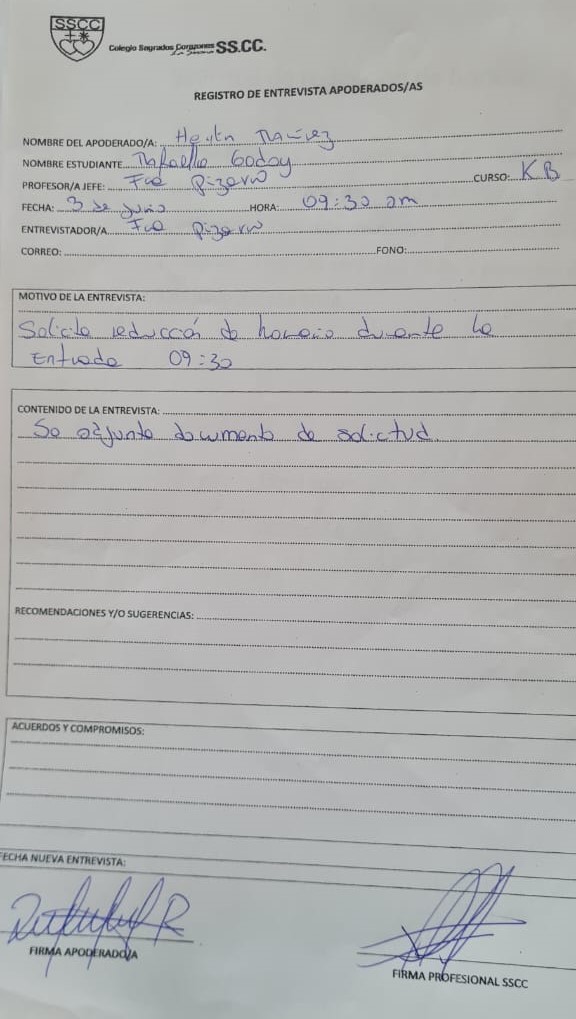 SSCC
Colegio Sagrados Corazones SS.CC.
La Serena
REGISTRO DE ENTREVISTA APODERADOS/AS
NOMBRE DEL APODERADO/A: Ramírez
NOMBRE ESTUDIANTE Rafaella Godoy
PROFESOR/A JEFE: Fca Pizarro CURSO: KB
FECHA: 3 de Junio HORA: 09:30 am
ENTREVISTADOR/A Fca Pizarro
CORREO: FONO:
MOTIVO DE LA ENTREVISTA:
Solicita reducción de horario durante la
Entrada 09:30
CONTENIDO DE LA ENTREVISTA:
Se adjunta documento de solicitud.
RECOMENDACIONES Y/O SUGERENCIAS:
ACUERDOS Y COMPROMISOS:
FECHA NUEVA ENTREVISTA:
FIRMA APODERADO/A
FIRMA PROFESIONAL SSCC